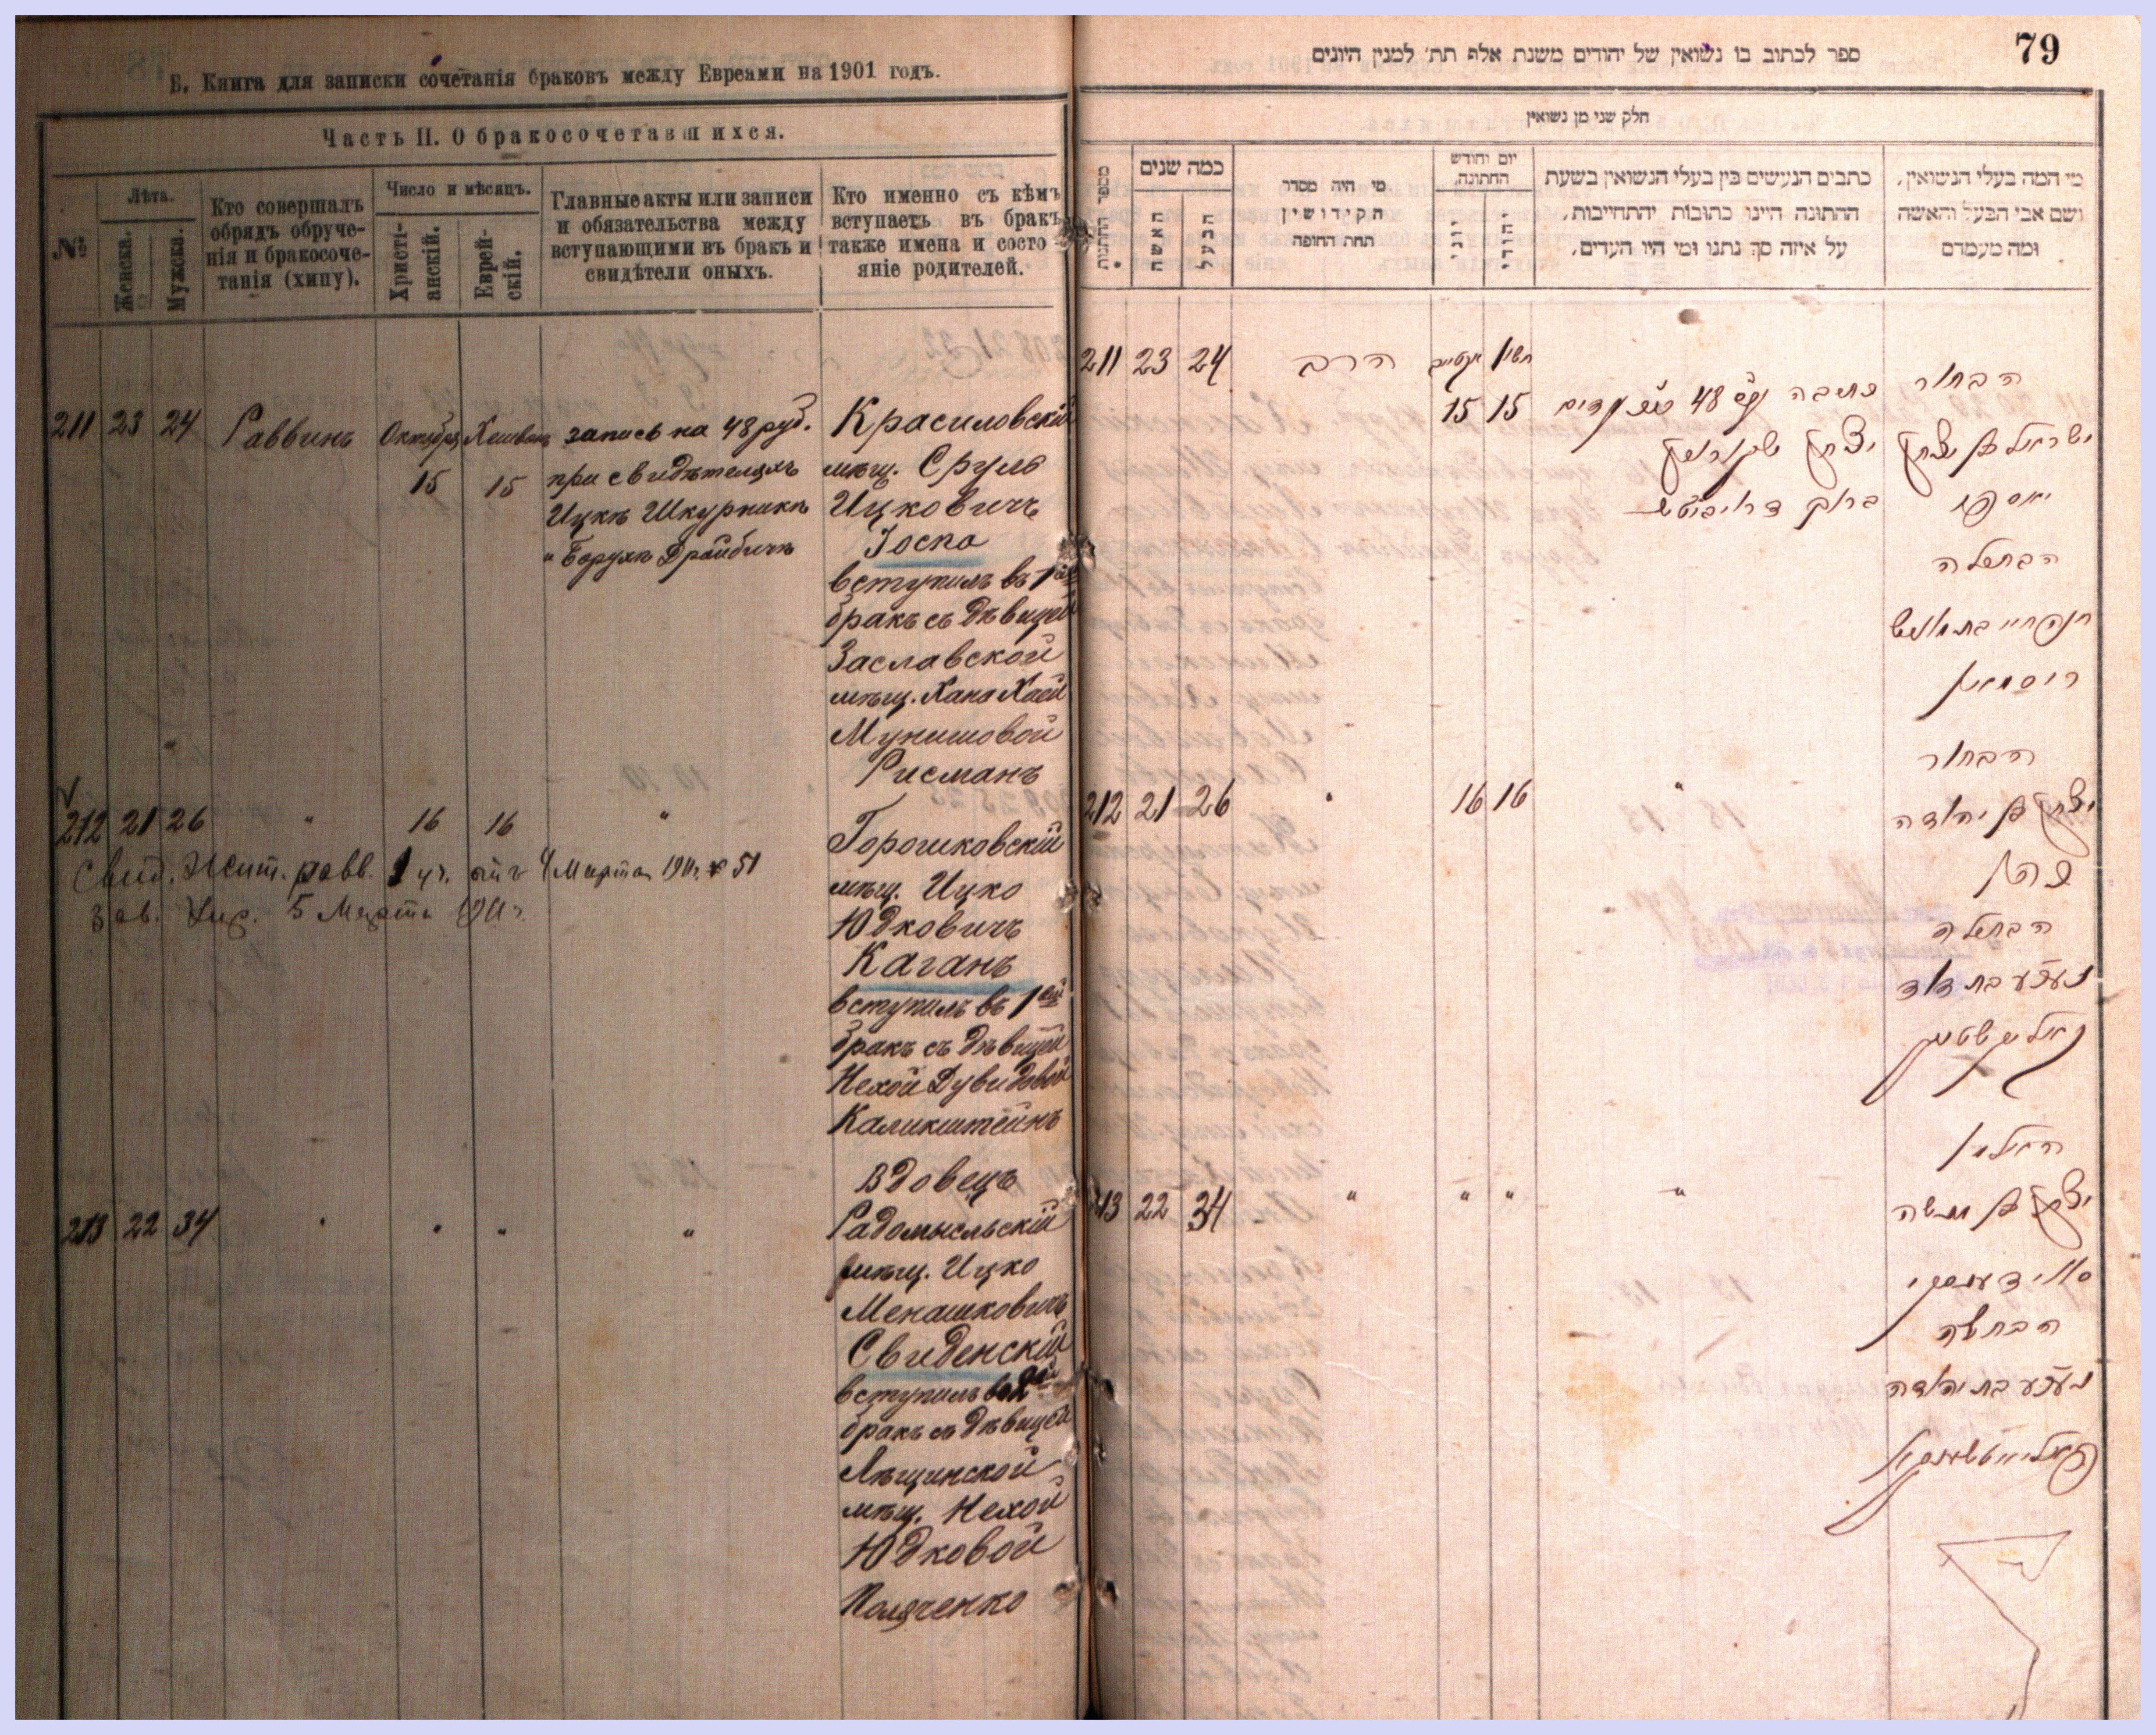 Б. Книга для записки сочетанія браковъ между Евреами на 1901 годъ.
Часть II. О бракосочетавшихся.
№
Лѣта.
Женска.
Мужска.
Кто совершалъ
обрядъ обруче-
нія и бракосоче-
танія (хипу).
Число и мѣсяцъ.
Христі-
анскій.
Еврей-
скій.
Главные акты или записи
и обязательства между
вступающими въ бракъ и
свидѣтели оныхъ.
Кто именно съ кѣмъ
вступаетъ въ бракъ
также имена и состо
яніе родителей.
211 23 24 Раввинъ Октября Хешванъ запись на 48 руб. Красиловскій
15 15 при свидѣтеляхъ мѣщ. Сруль
Ицкѣ Шкурникѣ Ицковичъ
" Борухѣ Драйбичѣ Іоспа
вступилъ въ 1ый
бракъ съ дѣвицей
Заславской
мѣщ. Хана Хаей
Мунишовой
Рисманъ
212 21 26 " 16 16 "
Горошковскій
Свид. Жит. равв. 1 уч. отъ 4 Марта 1911. № 51
мѣщ. Ицко
5 Марта 1911 г.
Юдковичъ
Каганъ
вступилъ въ 1ый
бракъ съ дѣвицей
Нехой Дувидовой
Каликштейнъ
Вдовецъ
213 22 34 " " " " Радомысльскій
мѣщ. Ицко
Менашковичъ
Свиденскій
вступилъ во 2ой
бракъ съ дѣвицей
Лѣщинской
мѣщ. Нехой
Юдковой
Поляченко
79
ספר לכתוב בו נשואין של יהודים משנת אלף תת׳ למנין היונים
חלק שני מן נשואין
מספר החתנות
כמה שנים
האשה
הבעל
מי היה מסדר
הקידושין
תחת החופה
יום וחודש
החתונה
יוני
יהודי
כתבים הנעשים בין בעלי הנשואין בשעת
החתונה היינו כתובות והתחייבות,
על איזה סך נתנו ומי היו העדים.
מי המה בעלי הנשואין,
ושם אבי הבעל והאשה
ומה מעמדם
211 23 24 הרב חשון
15 15 כתובה 48 הבחור
יצחק שקורניק ישראל בן יצחק
ברוך דרייביטש יאספא
הבתולה
חנה חיי בת מוניש
ריסמאן
הבחור
212 21 26 " 16 16 " יצחק בן יהודה
כהן
הבתולה
נעכע בת דוד
קאליקשטיין
האלמן
213 22 34 " " " " יצחק בן מנשה
סווידענסקי
הבתולה
נעכע בת יהודה